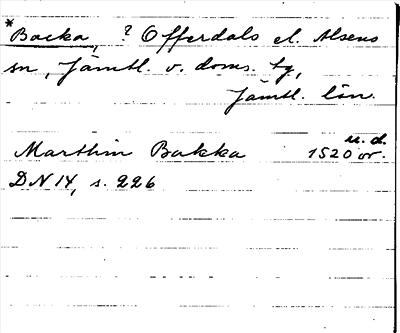 *Backa, ? Offerdals el. Alsens
sn, Jämtl. v. doms. tg,
Jämtl. län.
u. d.
Marthin Bakka 1520 or.
DN 14, s. 226